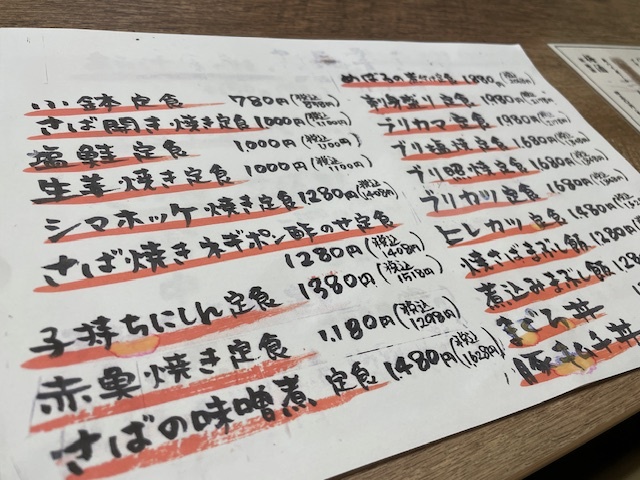 小鉢定食 780円(税込848円)
さば開き焼き定食 1000円(税込1100円)
塩鮭定食 1,000円(税込1100円)
生姜焼き定食 1000円(税込1100円)
シマホッケ焼き定食 1280円(税込1408円)
さば焼きネギポン酢のせ定食
1280円(税込1408円)
子持ちにしん定食 1380円(税込1518円)
赤奥焼き定食 1.180円(税込1298円)
さばの味噌煮定食 1.480円(税込1628円)
めばるの煮付け定食
刺身盛り定食 1980円
ブリカマ定食 1980円
ブリ塩焼定食 1680円
ブリ照焼定食 1680円
ブリカツ定食 1680円
ヒレカツ定食 1480円
焼さばまぶし飯 1280円
煮込みまぶし飯 128
まぐろ丼
豚キムチ丼